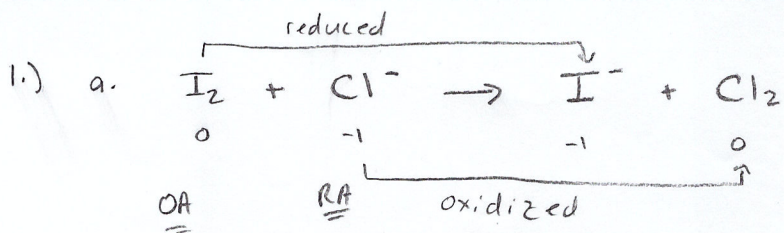 reduced
1.) a. I₂ + Cl⁻ → I⁻ + Cl₂
0 -1 -1 0
OA RA oxidized